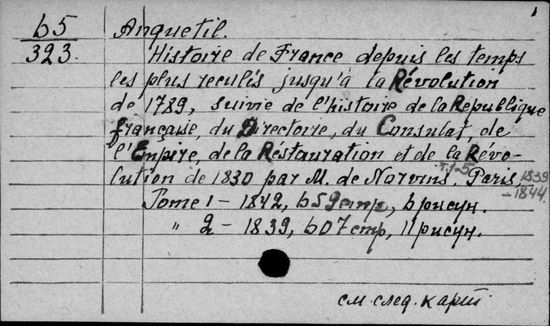 1
65
323.
Anquetil.
Histoire de France depuis les temps
les plus reculés jusqu'à la Révolution
de 1789, suivie de l'histoire de la République
française, du Directoire, du Consulat, de
l'Empire, de la Réstauration et de la Révo-
lution de 1830 par M. de Norvins. т.1-5 Paris, 1839
-1844.
Tome 1 – 1842, 659 стр, 6 рисун.
" 2 – 1839, 607 стр, 11 рисун.
см. след. карт